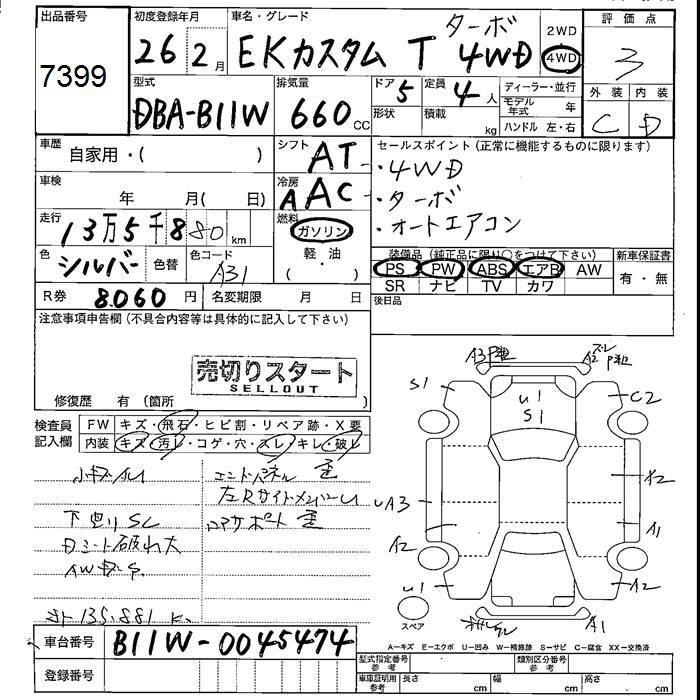 出品番号
7399
初度登録年月
26 2月
車名・グレード
EKカスタム T ターボ 4WD
2WD
4WD
評価点
3
外装 内装
C D
型式
DBA-B11W
排気量
660 CC
ドア 5
形状
定員 4人
積載 kg
ディーラー・並行
モデル年式 年
ハンドル 左・右
車歴
自家用・( )
シフト
AT
車検
年 月( 日)
冷房
AAC
セールスポイント (正常に機能するものに限ります)
・4WD
・ターボ
・オートエアコン
走行
13万5千880 km
燃料
ガソリン
軽・油
・( )
色
シルバー
色替
色コード
A31
装備品 (純正品に限り○をつけて下さい)
PS PW ABS エアB AW
SR ナビ TV カワ
新車保証書
有・無
R券 8060 円
名変期限 月 日
後日品
注意事項申告欄 (不具合内容等は具体的に記入して下さい)
売切りスタート
SELLOUT
修復歴 有 (箇所 )
検査員記入欄
FW キズ・飛石・ヒビ割・リペア跡・X要
内装 キズ・汚レ・コゲ・穴・スレ・キレ・破レ
エンドパネル 歪
左Rサイドメンバー U
リアサポート 歪
Dシート破れ大
135,881 K
A3
A2
S1
U1
S1
C2
A2
UA3
A1
A2
A2
U1
A1
スペア
A-キズ E-エクボ U-凹み W-補修跡 S-サビ C-腐食 XX-交換済
車台番号
B11W-0045474
登録番号
型式指定番号 参考
類別区分番号 参考
車庫証明用 参考
長さ cm
幅 cm
高さ cm